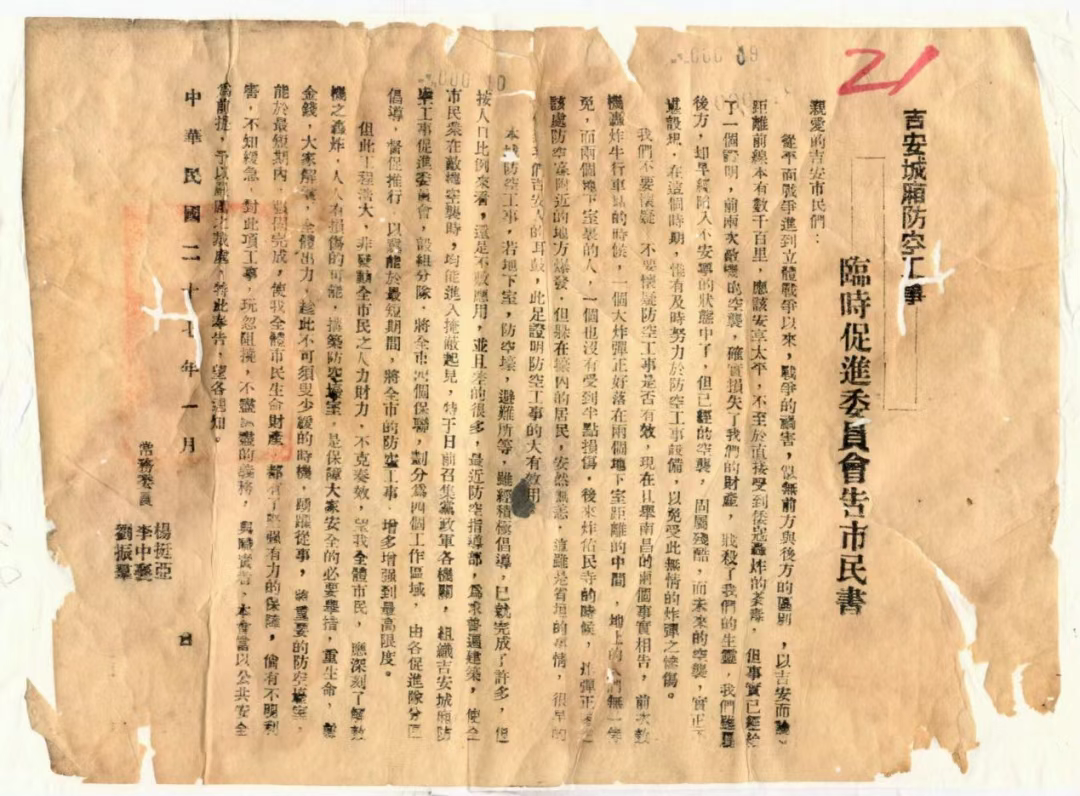 21
吉安城廂防空工事
臨時促進委員會告市民書
親愛的吉安市民們：
從平面戰爭進到立體戰爭以來，戰爭的禍害，似無前方與後方的區別，以吉安而論，
距離前線本有數千百里，應該安享太平，不至於直接受到倭寇轟炸的荼毒，但事實已經給
了一個證明，前兩次敵機的空襲，確實損失了我們的財產，戕殺了我們的生靈，我們雖屬
後方，却早經陷入不安寧的狀態中了，但已經的空襲，固屬殘酷，而未來的空襲，實正不
設想，在這個時期，惟有及時努力於防空工事設備，以免受此無情的炸彈之慘傷。
我們不要懷疑，不要懷疑防空工事是否有效，現在且舉南昌的兩個事實相告，前次敵
機轟炸牛行車站的時候，一個大炸彈正好落在兩個地下室距離的中間，地上的人們無一倖
免，而兩個地下室裏的人，一個也沒有受到半點損傷，後來炸佑民寺的時候，炸彈正
該處防空壕附近的地方爆發，但躲在壕內的居民，安然無恙，這雖是省垣的事情，很早的
我們吉安人的耳鼓，此足證明防空工事的大有效用。
本城防空工事，若地下室，防空壕，避難所等，雖經積極倡導，已就完成了許多，但
按人口比例來看，還是不敷應用，並且差的很多，最近防空指導部，爲求普遍建築，使全
市民衆在敵機空襲時，均能進入掩蔽起見，特于日前召集黨政軍各機關，組織吉安城廂防
空工事促進委員會，設組分隊，將全市四個保聯，劃分爲四個工作區域，由各促進隊分區
倡導，督促推行，以冀能於最短期間，將全市的防空工事，增多增强到最高限度。
但此工程浩大，非發動全市民之人力財力，不克奏效，望我全體市民，應深刻了解敵
機之轟炸，人人有損傷的可能，構築防空壕室，是保障大家安全的必要舉措，重生命，輕
金錢，大家解囊，全體出力，趁此不可須臾少緩的時機，踴躍從事，將重要的防空壕室，
能於最短期內，張閎完成，使我全體市民生命財產，都有了堅强有力的保障，倘有不明利
害，不知緩急，對此項工事，玩忽阻撓，不盡應盡的義務，與勝實者，本會當以公共安全
爲前提，予以嚴厲之裁處，特此奉告，望各週知。
中華民國二十七年一月　日
常務委員
楊挺亞
李中襄
劉振羣